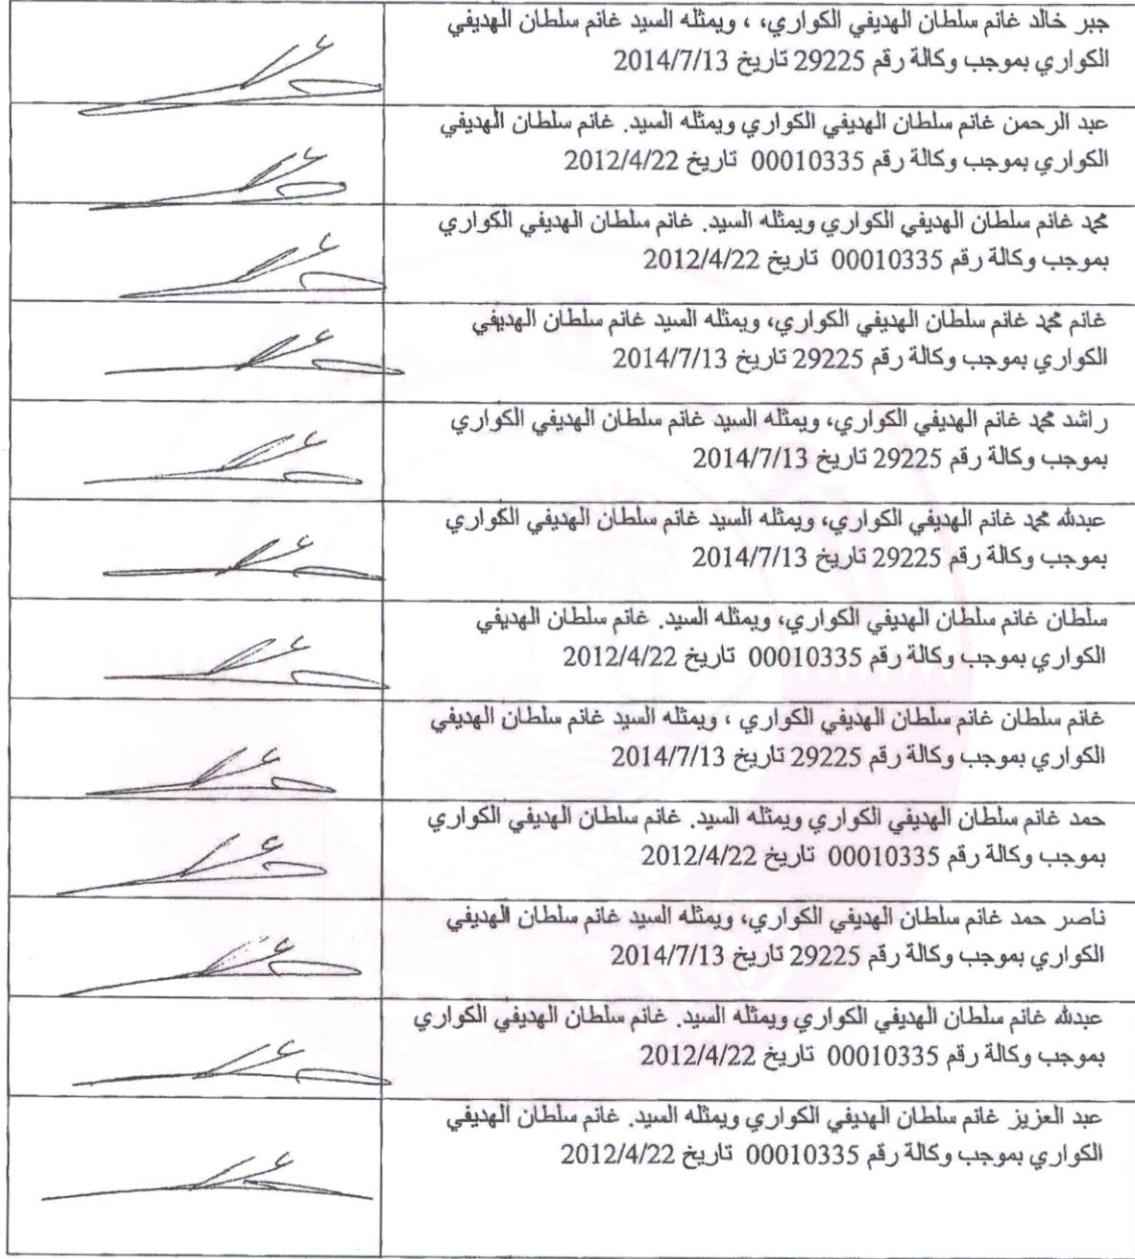 جبر خالد غانم سلطان الهديفي الكواري، ، ويمثله السيد غانم سلطان الهديفي
الكواري بموجب وكالة رقم 29225 تاريخ 2014/7/13
عبد الرحمن غانم سلطان الهديفي الكواري ويمثله السيد. غانم سلطان الهديفي
الكواري بموجب وكالة رقم 00010335 تاريخ 2012/4/22
محمد غانم سلطان الهديفي الكواري ويمثله السيد. غانم سلطان الهديفي الكواري
بموجب وكالة رقم 00010335 تاريخ 2012/4/22
غانم محمد غانم سلطان الهديفي الكواري، ويمثله السيد غانم سلطان الهديفي
الكواري بموجب وكالة رقم 29225 تاريخ 2014/7/13
راشد محمد غانم الهديفي الكواري، ويمثله السيد غانم سلطان الهديفي الكواري
بموجب وكالة رقم 29225 تاريخ 2014/7/13
عبدلله محمد غانم الهديفي الكواري، ويمثله السيد غانم سلطان الهديفي الكواري
بموجب وكالة رقم 29225 تاريخ 2014/7/13
سلطان غانم سلطان الهديفي الكواري، ويمثله السيد. غانم سلطان الهديفي
الكواري بموجب وكالة رقم 00010335 تاريخ 2012/4/22
غانم سلطان غانم سلطان الهديفي الكواري ، ويمثله السيد غانم سلطان الهديفي
الكواري بموجب وكالة رقم 29225 تاريخ 2014/7/13
حمد غانم سلطان الهديفي الكواري ويمثله السيد. غانم سلطان الهديفي الكواري
بموجب وكالة رقم 00010335 تاريخ 2012/4/22
ناصر حمد غانم سلطان الهديفي الكواري، ويمثله السيد غانم سلطان الهديفي
الكواري بموجب وكالة رقم 29225 تاريخ 2014/7/13
عبدلله غانم سلطان الهديفي الكواري ويمثله السيد. غانم سلطان الهديفي الكواري
بموجب وكالة رقم 00010335 تاريخ 2012/4/22
عبد العزيز غانم سلطان الهديفي الكواري ويمثله السيد. غانم سلطان الهديفي
الكواري بموجب وكالة رقم 00010335 تاريخ 2012/4/22